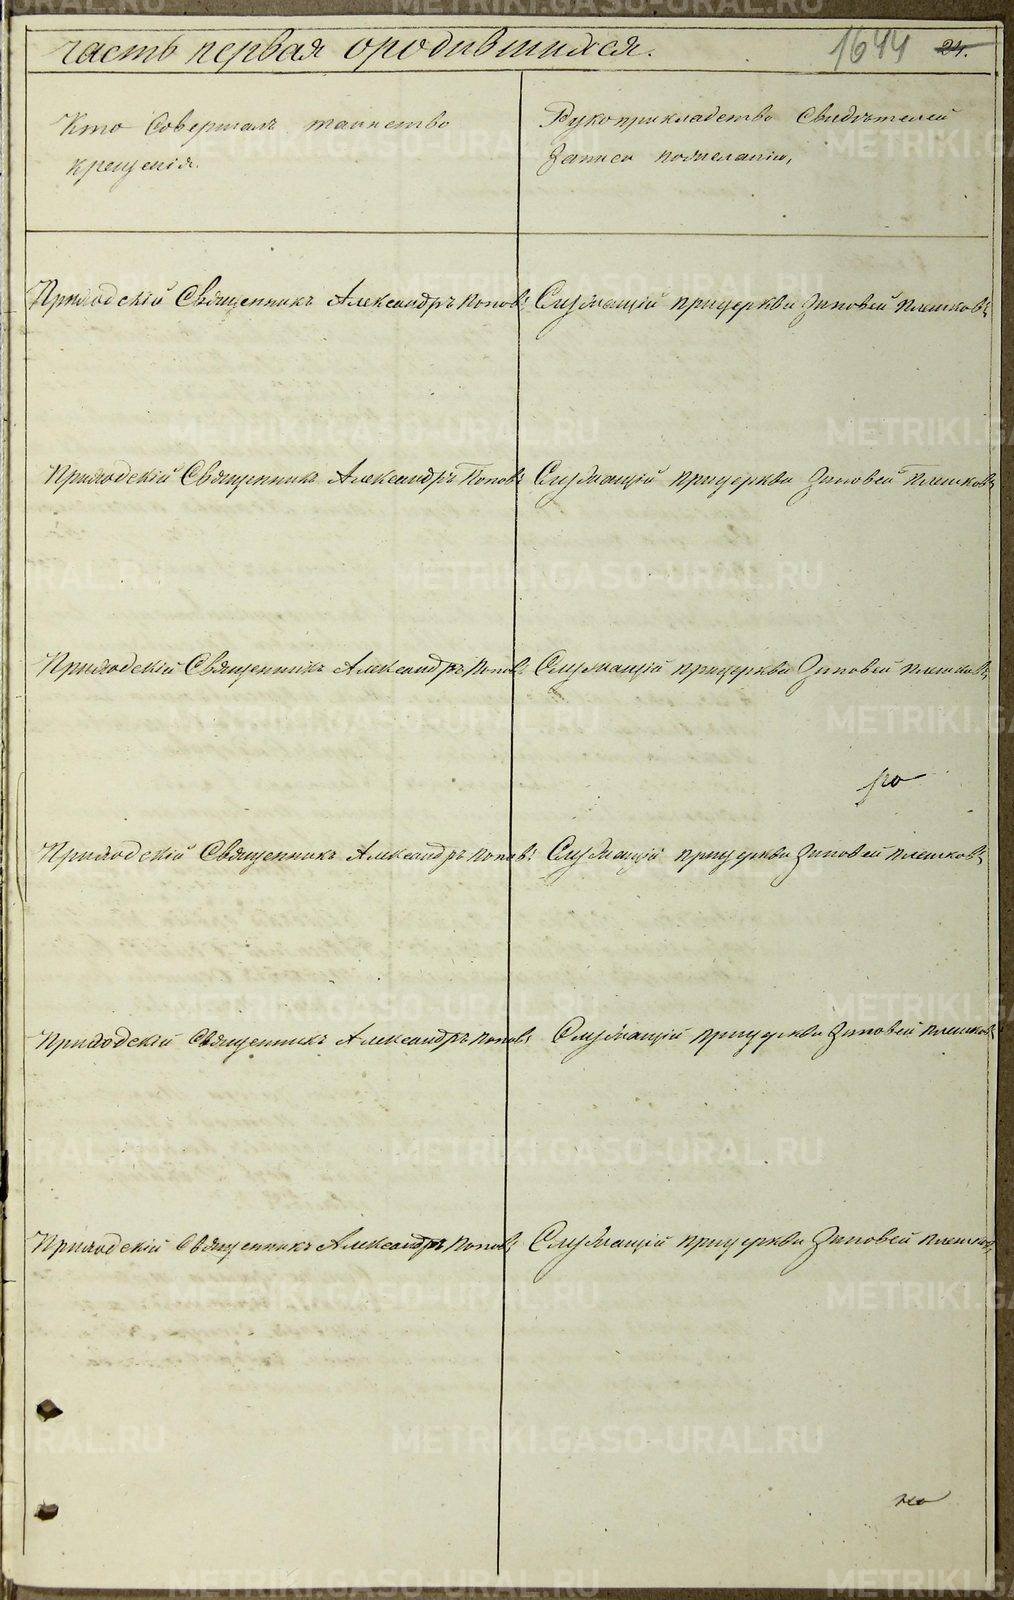 часть первая ородившихся.
1644
24.
Кто Совершалъ таинство
крещенія.
Рукоприкладство Свидѣтелей
Записи пожеланію,
Приходскій Священникъ Александръ Поповъ
Служащій прицеркви Зиновей Плешковъ
Приходскій Священникъ Александръ Поповъ
Служащій прицеркви Зиновей Плешковъ
Приходскій Священникъ Александръ Поповъ
Служащій прицеркви Зиновей Плешковъ
Приходскій Священникъ Александръ Поповъ
Служащій прицеркви Зиновей Плешковъ
Приходскій Священникъ Александръ Поповъ
Служащій прицеркви Зиновей Плешковъ
Приходскій Священникъ Александръ Поповъ
Служащій прицеркви Зиновей Плешковъ
METRIKI.GASO-URAL.RU